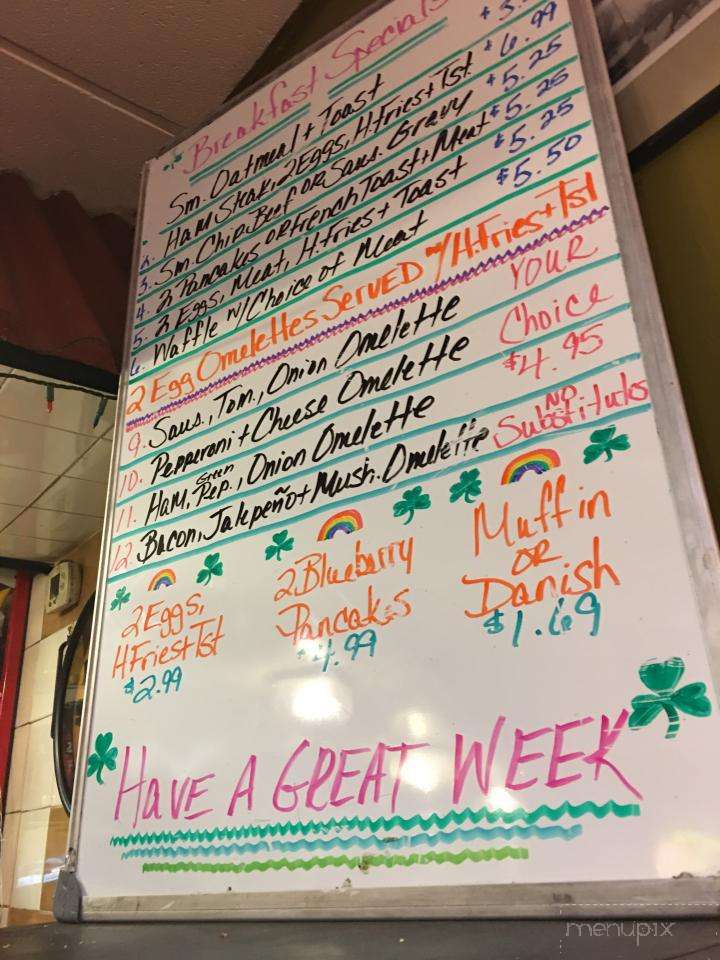 Breakfast Specials
Sm. Oatmeal + Toast $3.
2. Ham Steak, 2 Eggs, H.Fries + Tst. $6.99
3. Sm. Chip Beef OR Saus. Gravy $5.25
4. 2 Pancakes OR French Toast + Meat $5.25
5. 2 Eggs, Meat, H.Fries + Toast $5.25
6. Waffle w/ Choice of Meat $5.50
2 Egg Omelettes SERVED w/ H.Fries + Tst
9. Saus., Tom., Onion Omelette YOUR
10. Pepperoni + Cheese Omelette Choice
11. Ham, Green Pep., Onion Omelette $4.95
12. Bacon, Jalepeño + Mush. Omelette NO Substitutes
2 Eggs,
H Fries + Tst
$2.99
2 Blueberry
Pancakes
$4.99
Muffin
OR
Danish
$1.69
HAVE A GREAT WEEK
menupix